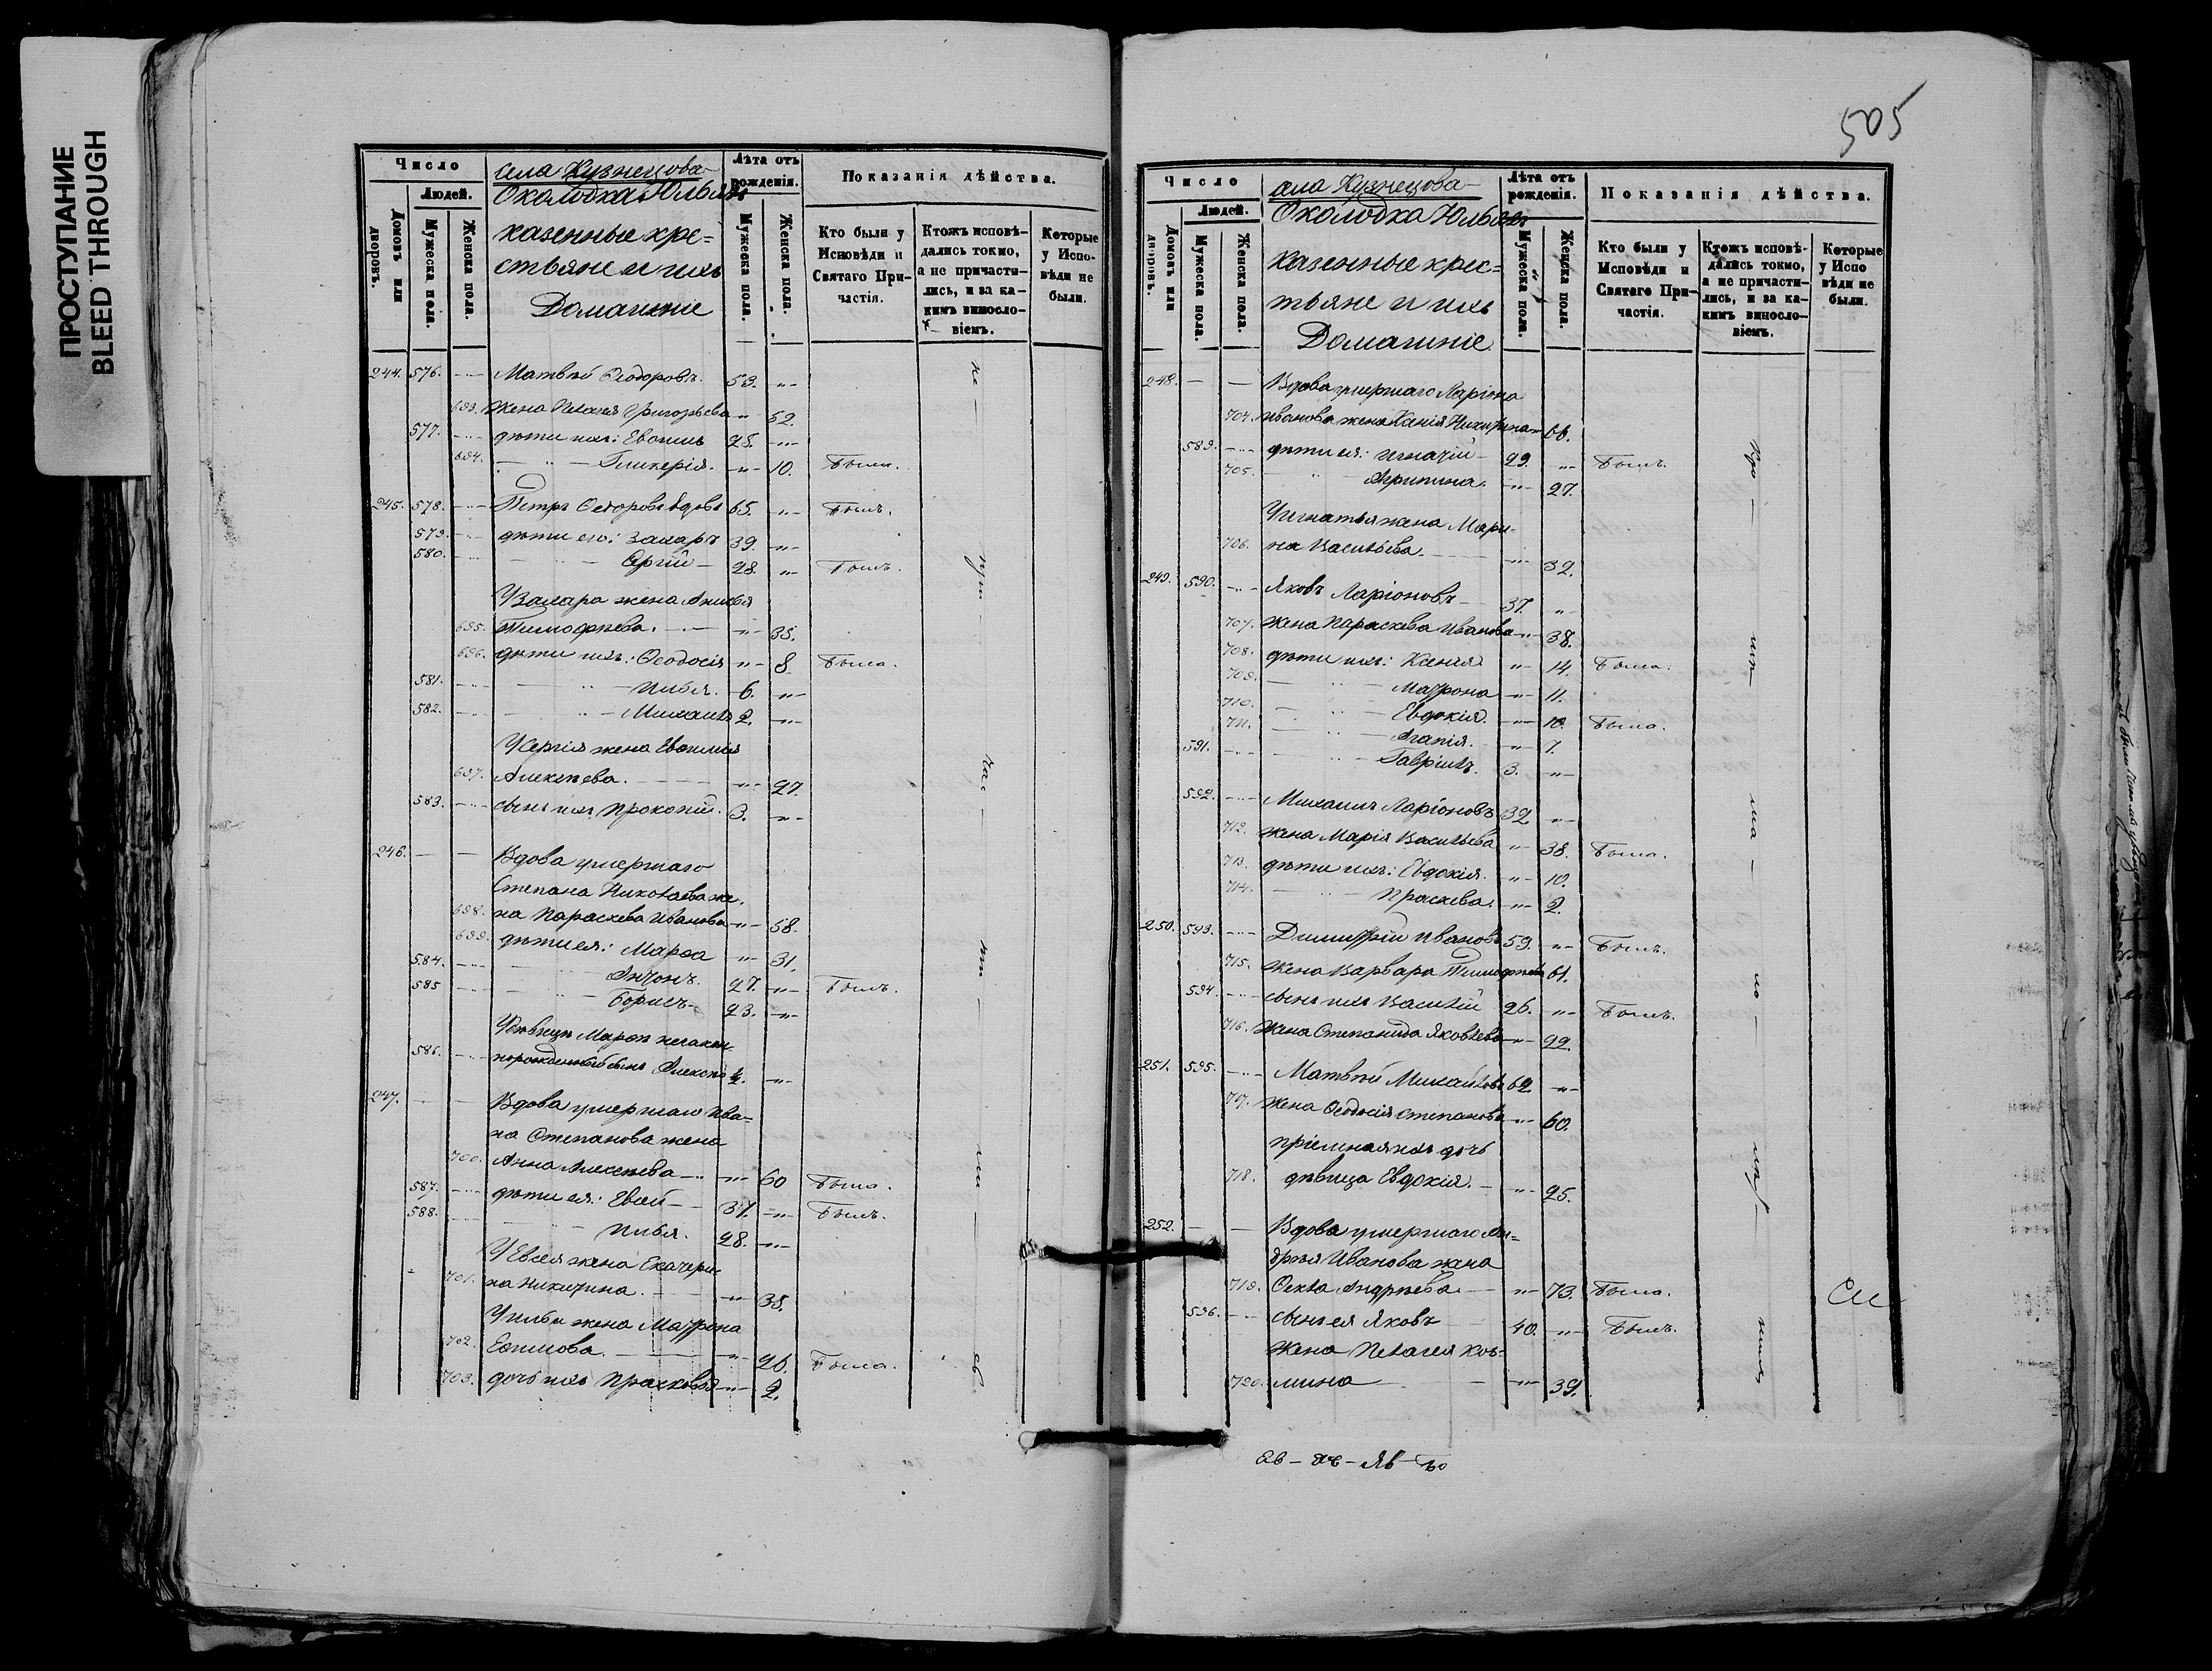 ПРОСТУПАНИЕ
BLEED THROUGH
Число
Людей.
Домовъ или дворовъ.
Мужеска пола.
Женска пола.
села Кузнецова
Околодка Юльял
казенные кре=
стьяне и ихъ
Домашніе
Лѣта отъ рожденія.
Мужеска пола.
Женска пола.
Показанія дѣйства.
Кто были у Исповѣди и Святаго Причастія.
Ктожъ исповѣдались токмо, а не причастились, и за какимъ винословіемъ.
Которые у Исповѣди не были.
244. 576. Матвѣй Ѳеодоровъ. 53.
693. Жена Пелагея Григорьева 52.
577. дѣти ихъ: Евѳимъ 25.
694. Гликерія. 10. Была.
245. 578. Петръ Ѳеодоровъ вдовъ 65. Былъ.
579. дѣти его: Захаръ 39.
580. Сергій 28. Былъ.
У Захара жена Анисья
695. Тимоѳеева. 35.
696. дѣти ихъ: Ѳеодосія 8 Была.
581. Илья. 6.
582. Михаилъ 2.
У Сергія жена Евѳимія
697. Алексѣева. 27.
583. сынъ ихъ Прокопій. 3.
246. Вдова умершаго
Степана Николаева же-
698. на Параскева Иванова 58.
699. дѣти ея: Марѳа 31.
584. Антонъ. 27. Былъ.
585 Борисъ 23.
У дѣвицы Марѳы незакон-
586. норожденный сынъ Алексѣй ½.
247. Вдова умершаго Ива-
на Степанова жена
700. Анна Алексѣева 60 Была.
587. дѣти ея: Евсей 37. Былъ.
588. Илья. 28.
У Евсея жена Екатери-
701. на Никитина. 38.
У Ильи жена Матрона
702. Еѳимова. 26. Была.
703. дочь ихъ Прасковья 2.
505
Число
Людей.
Домовъ или дворовъ.
Мужеска пола.
Женска пола.
села Кузнецова
Околодка Юльял
казенные крес=
тьяне и ихъ
Домашніе
Лѣта отъ рожденія.
Мужеска пола.
Женска пола.
Показанія дѣйства.
Кто были у Исповѣди и Святаго Причастія.
Ктожъ исповѣдались токмо, а не причастились, и за какимъ винословіемъ.
Которые у Исповѣди не были.
248. Вдова умершаго Ларіона
704. Иванова жена Ксенія Никитина 66.
589. дѣти ея: Игнатій 29. Былъ.
705. Агрипина. 27.
У Игнатья жена Мари-
706. на Васильева. 32.
249. 590. Яковъ Ларіоновъ 37.
707. Жена Параскева Иванова 38.
708. дѣти ихъ: Ксенія 14. Была.
709. Матрона 11.
710. Евдокія. 10. Была.
711. Агапія. 7.
591. Гавріилъ. 3.
592. Михаилъ Ларіоновъ 32
712. жена Марія Васильева 38. Была.
713. дѣти ихъ: Евдокія. 10.
714. Прасхева. 2.
250. 593. Димитрій Ивановъ 59. Былъ.
715. Жена Варвара Тимоѳеева 61.
594. сынъ ихъ Василій 26. Былъ.
716. Жена Степанида Яковлева 22.
251. 595. Матвѣй Михайловъ 62.
717. Жена Ѳеодосія Степанова 60.
пріемная ихъ дочь
718. дѣвица Евдокія. 25.
252. Вдова умершаго Ан=
дрея Иванова жена
719. Ѳекла Андреева 73. Была.
596. сынъ ея Яковъ 40. Былъ.
Жена Пелагея Кось-
720. мина 39.